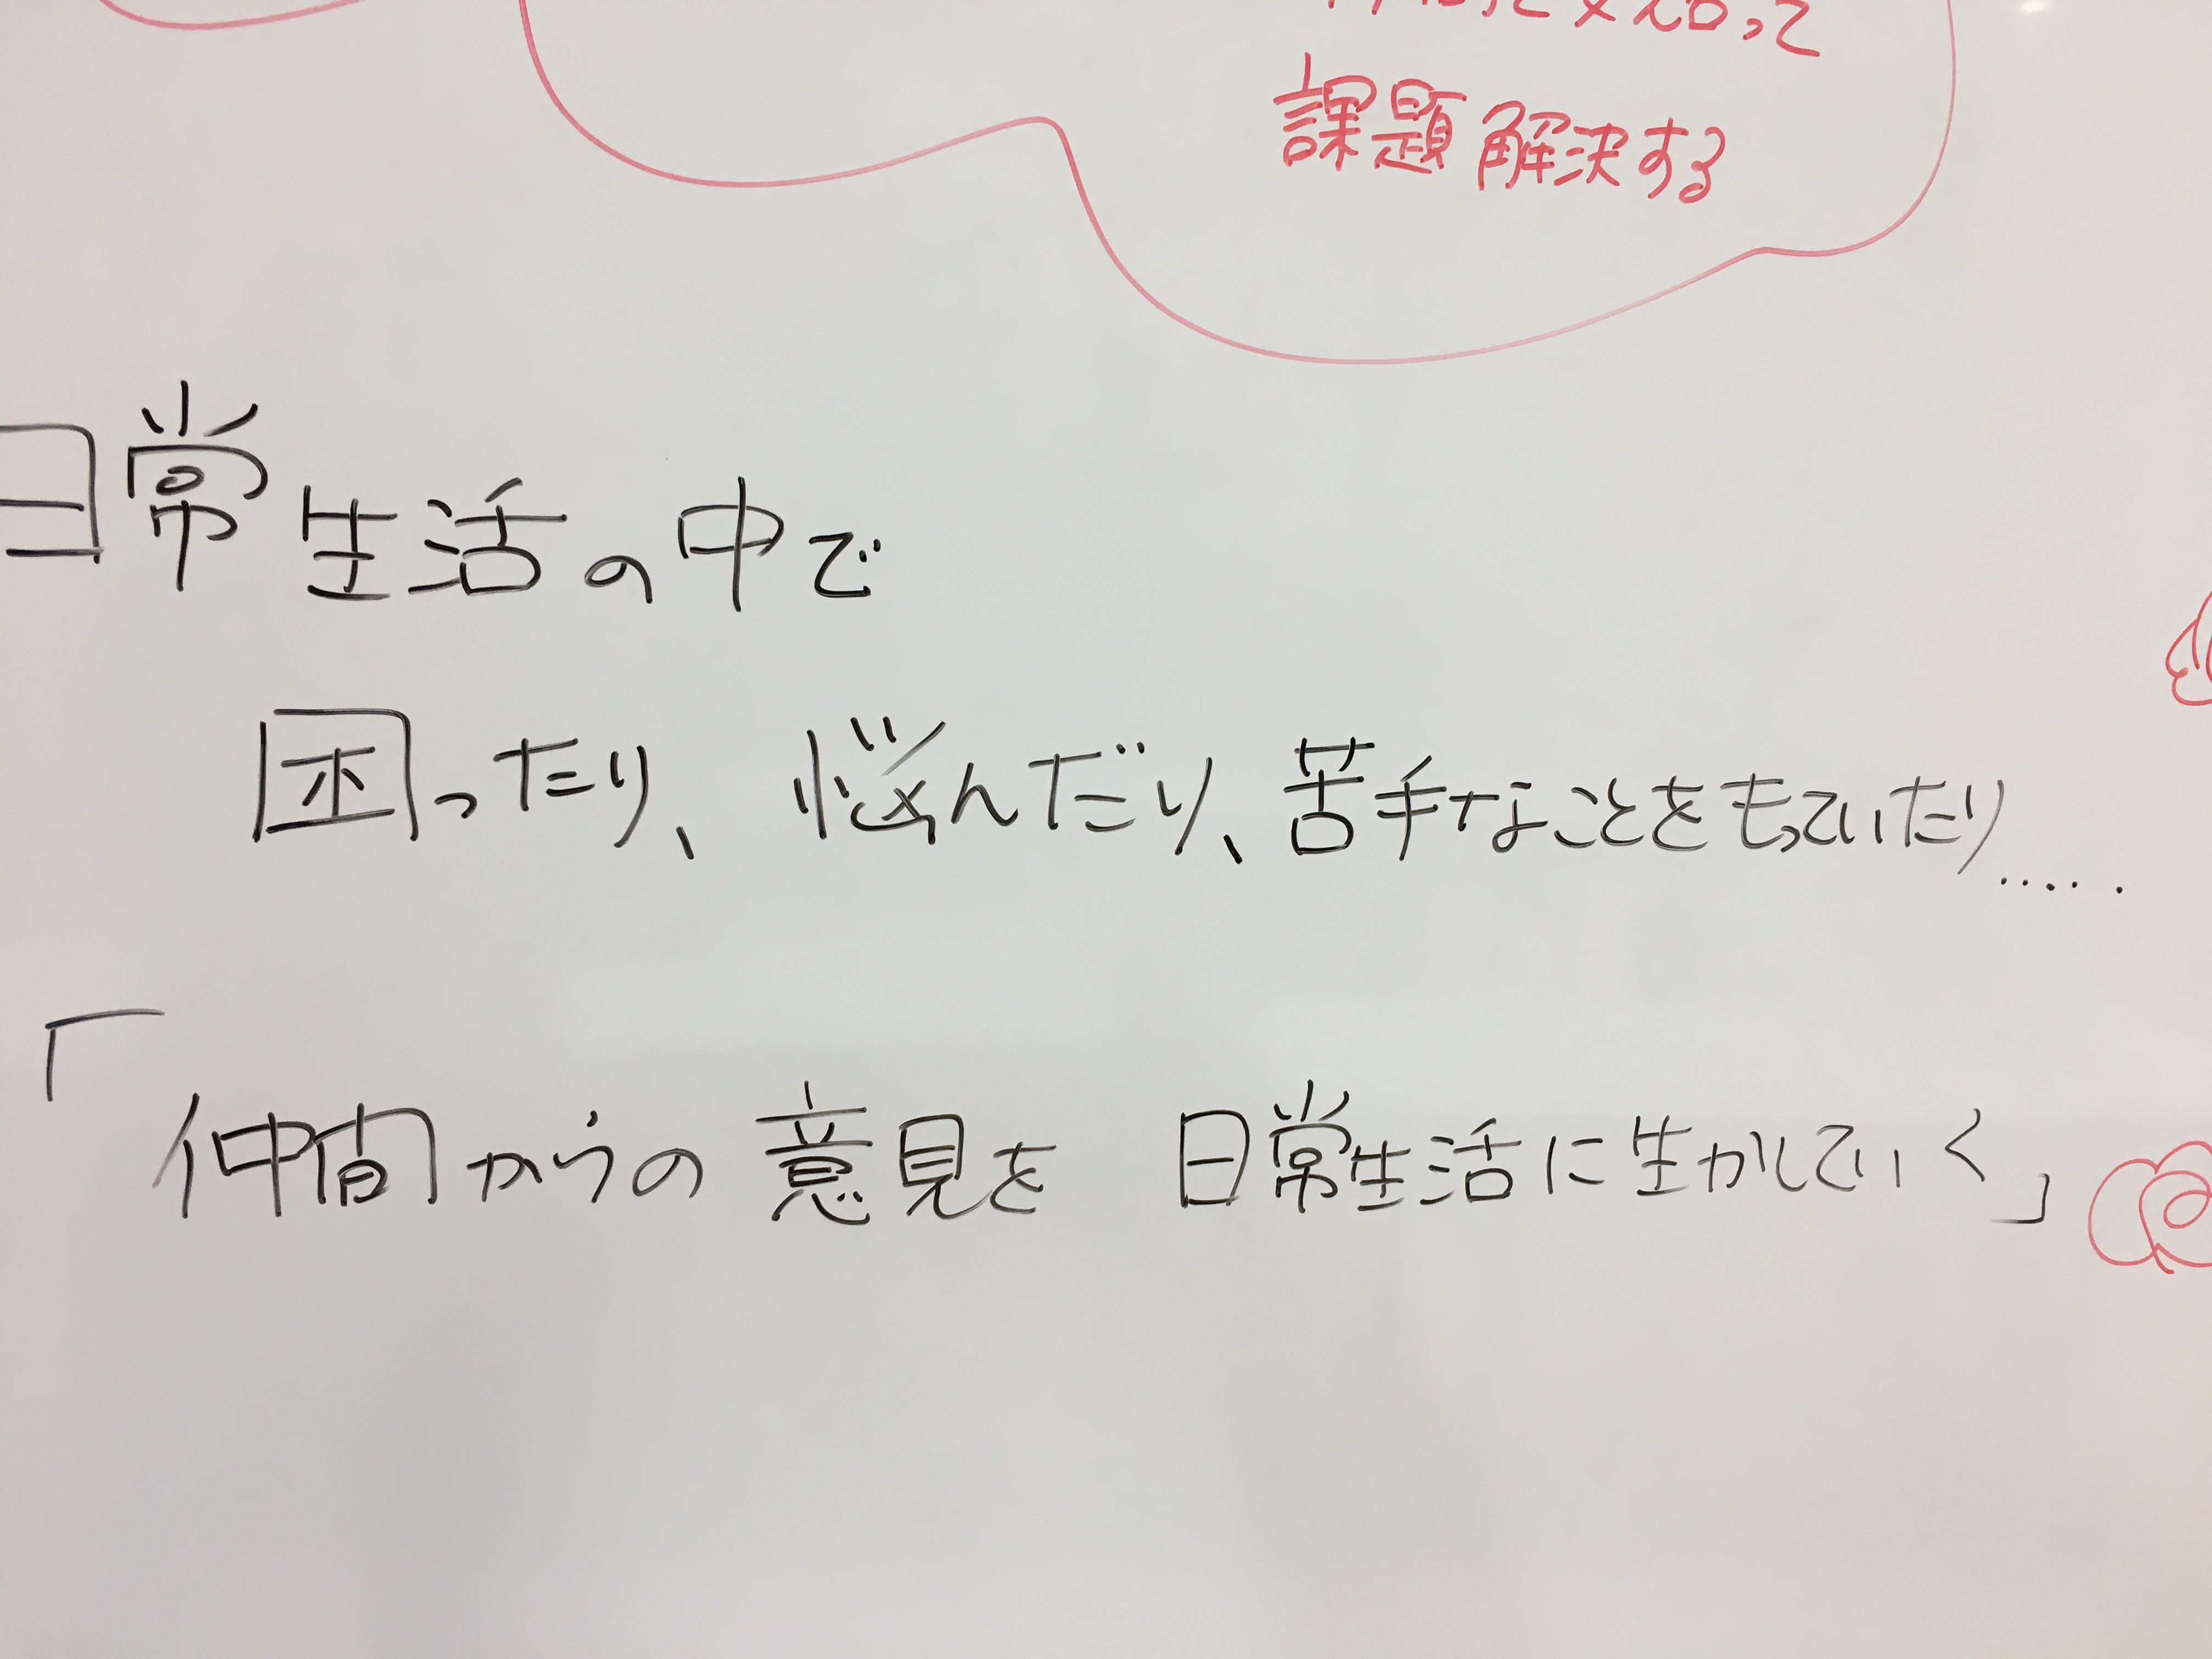 課題解決する
日常生活の中で
困ったり、悩んだり、苦手なことをもっていたり.....
「仲間からの意見を 日常生活に生かしていく」